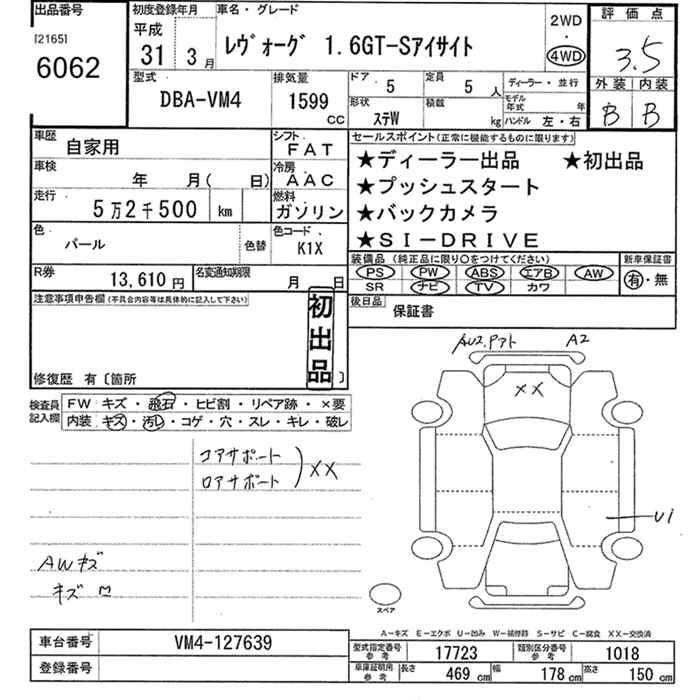 出品番号
[2165]
6062
初度登録年月
平成
31年 3月
車名・グレード
レヴォーグ 1.6GT-Sアイサイト
2WD
・
4WD
評価点
3.5
外装 内装
B B
型式
DBA-VM4
排気量
1599 CC
ドア 5
定員 5人
形状 ステW
積載 kg
ディーラー・並行
モデル年式 年
ハンドル 左・右
車歴 自家用
シフト FAT
車検 年 月( 日)
冷房 AAC
走行 5万2千500 km
燃料 ガソリン
色 パール 色替
色コード K1X
R券 13,610円
名変通知期限 月 日
セールスポイント(正常に機能するものに限ります)
★ディーラー出品 ★初出品
★プッシュスタート
★バックカメラ
★SI-DRIVE
装備品(純正品に限り○をつけてください)
PS PW ABS エアB AW
SR ナビ TV カワ
新車保証書
有・無
後日品 保証書
注意事項申告欄(不具合内容等は具体的に記入して下さい)
初出品
修復歴 有〔箇所 〕
検査員記入欄
FW キズ・飛石・ヒビ割・リペア跡・×要
内装 キズ・汚レ・コゲ・穴・スレ・キレ・破レ
コアサポート
ロアサポート
)××
AWキズ
キズ
AU2.Pアト A2
××
U1
スペア
A-キズ E-エクボ U-凹み W-補修跡 S-サビ C-腐食 XX-交換済
車台番号 VM4-127639
登録番号
型式指定番号 参考 17723
類別区分番号 参考 1018
車庫証明用 参考 長さ 469 cm 幅 178 cm 高さ 150 cm